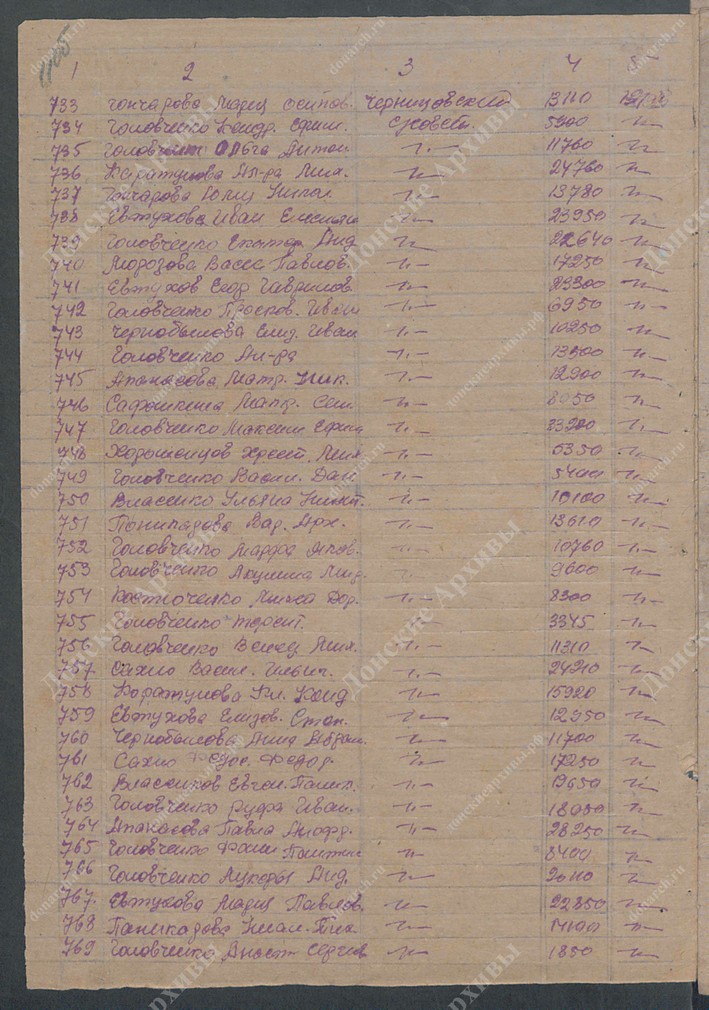 1 2 3 4 5
733 Гончарова Мария Осипов. Черницовский 13110
734 Головченко Кондр. Ефим. с/совет. 5900 -"-
735 Ольга Антон. -"- 11760 -"-
736 Ал-ра Мих. -"- 24760 -"-
737 Гончарова Юлия -"- 13780 -"-
738 Евтухова Иван -"- 23950 -"-
739 Головченко Екатер. Анд -"- 22640 -"-
740 Морозова Васса Павлов. -"- 17250 -"-
741 Евтухов Егор Гаврилов -"- 23300 -"-
742 Головченко Просков. Иван -"- 6950 -"-
743 Чернобылова Елиз. Иван -"- 10250 -"-
744 Головченко Ал-ра -"- 13500 -"-
745 Апанасова Матр. Ник. -"- 12900 -"-
746 Сафошкина Матр. Сем. -"- 8950 -"-
747 Головченко Максим Ефим -"- 23200 -"-
748 Хорошенцов Хрест. Мих -"- 5350 -"-
749 Головченко Васил. Дан. -"- 5400 -"-
750 Власенко Ульяна Никит. -"- 10100 -"-
751 Панипадова Вар. Арх. -"- 13610 -"-
752 Головченко Марфа Яков. -"- 10760 -"-
753 Головченко Акулина Анд. -"- 9600 -"-
754 Костюченко -"- 8300 -"-
755 Головченко Терент. -"- 3345 -"-
756 Головченко Мих. -"- 11310 -"-
757 Сахно Васил. Ильич. -"- 24210 -"-
758 Каратунова Кл. Конд -"- 15920 -"-
759 Евтухова Елизов. Степ. -"- 12950 -"-
760 Чернобылова Анна Абрам. -"- 11700 -"-
761 Сахно Федос. Федор. -"- 17250 -"-
762 Власенков Евген. -"- 19650 -"-
763 Головченко Руфа Иван. -"- 18050 -"-
764 Апанасова Павла -"- 28250 -"-
765 Головченко -"- 8400 -"-
766 Головченко Анд. -"- 20110 -"-
767 Евтухова Мария Павлов. -"- 22850 -"-
768 Панипадова -"- 14100 -"-
769 Головченко Анаст Сергеев -"- 1850 -"-